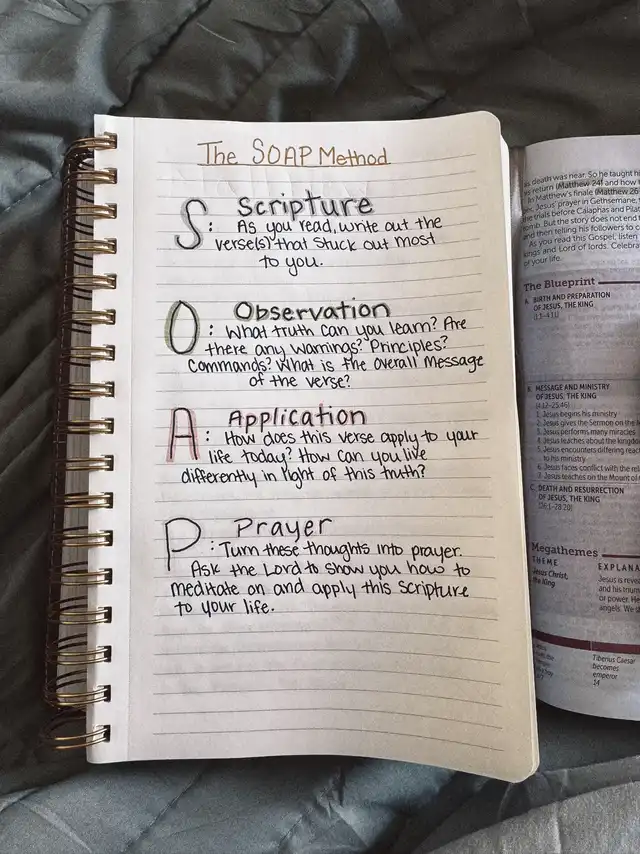 The SOAP Method
S Scripture
: As you read, write out the
verse(s) that stuck out most
to you.
O Observation
: What truth can you learn? Are
there any warnings? Principles?
Commands? What is the overall message
of the verse?
A Application
: How does this verse apply to your
life today? How can you live
differently in light of this truth?
P Prayer
: Turn these thoughts into prayer.
Ask the Lord to show you how to
meditate on and apply this scripture
to your life.
death was near. So he taught
return (Matthew 24) and how
Matthew's finale (Matthew 26
Jesus' prayer in Gethsemane,
trials before Caiaphas and
But the story does not end
and then telling his followers to
As you read this Gospel, listen
kings and Lord of lords.
of your life.
The Blueprint
A. BIRTH AND PREPARATION
OF JESUS, THE KING
(1:1–4:11)
B. MESSAGE AND MINISTRY
OF JESUS, THE KING
(4:12–25:46)
1. Jesus begins his ministry
2. Jesus gives the Sermon on the
3. Jesus performs many miracles
4. Jesus teaches about the
5. Jesus encounters differing
to his ministry
6. Jesus faces conflict with the
7. Jesus teaches on the Mount of
C. DEATH AND RESURRECTION
OF JESUS, THE KING
(26:1–28:20)
Megathemes
THEME
Jesus Christ,
the King
Jesus is
and his
or power.
angels. We
Tiberius Caesar
becomes
emperor
14